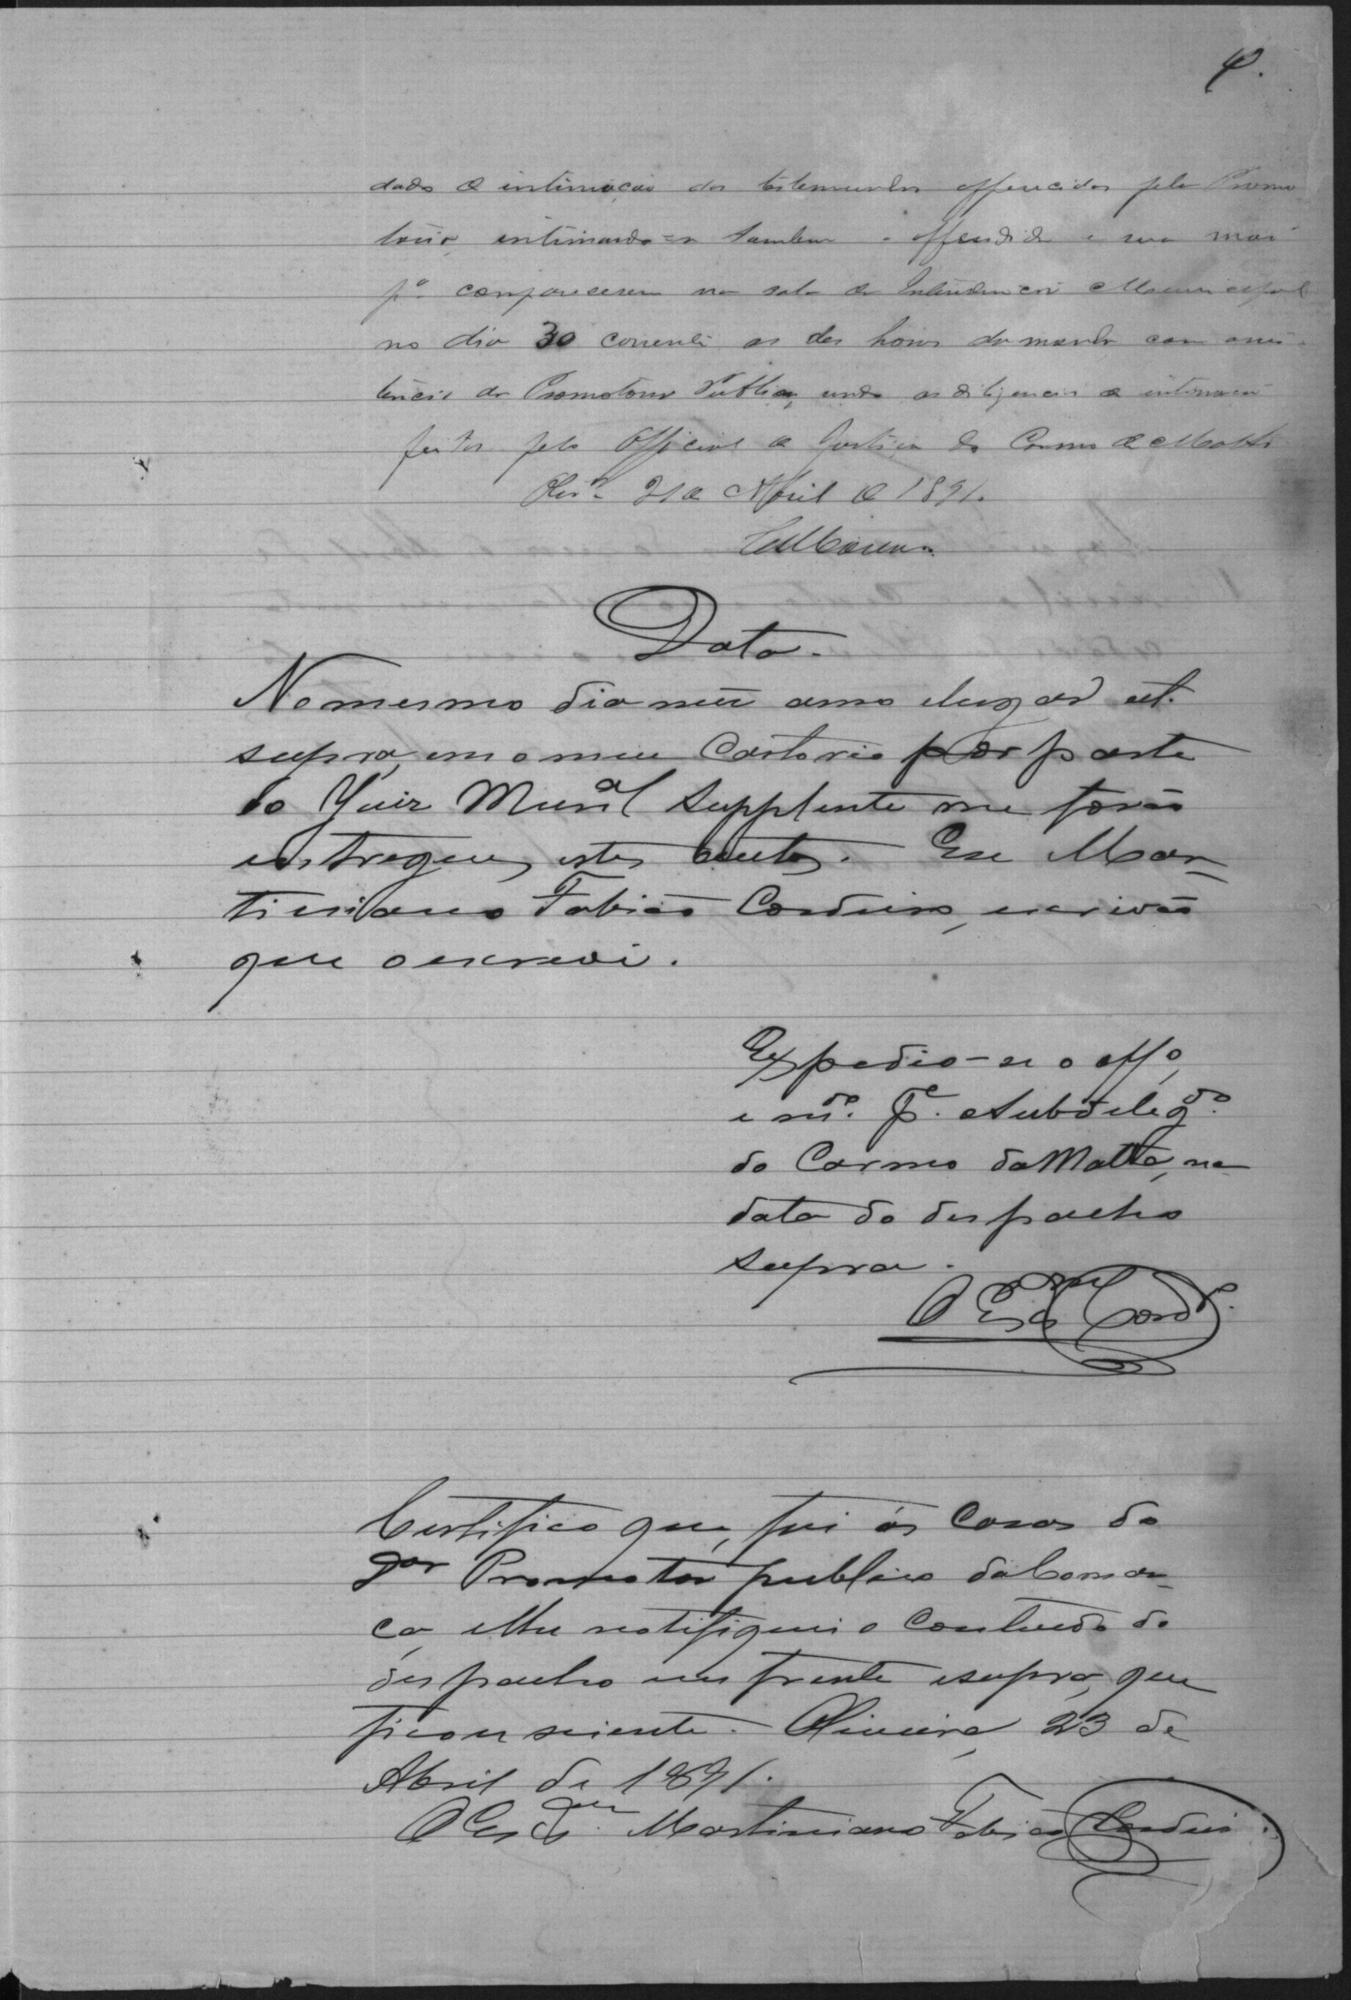 4.
dado de intimação das testemunhas offerecidas pela Promo
toria, intimando=se tambem a offendida e sua mai
pª comparecerem na sala da Intendencia Municipal
no dia 30 corrente as dez horas da manhã com assis
tencia do Promotor Publico, sendo as diligencias de intimação
feitas pelo Official de Justiça do Carmo da Matta
Olivª 21 de Abril de 1891.
Data.
No mesmo dia mez anno e lugar ut
supra, em o meu Cartorio por parte
do Juiz Munal Supplente me forão
entregues estes autos. Eu Mar-
tiniano Fabião Cordeiro, escrivão
que o escrevi.
Expedio-se o offo,
e mdo. Pe. a Subdelegdo.
do Carmo da Matta, na
data do despacho
supra.
O Escam Cordo.
Certifico que, fui ás casas do
Dor Promotor publico da Comar-
ca, e lhe notifiquei o contheudo do
despacho em frente e supra, que
ficou sciente. Oliveira, 23 de
Abril de 1891.
O Escam. Martiniano Fabião Cordeiro.